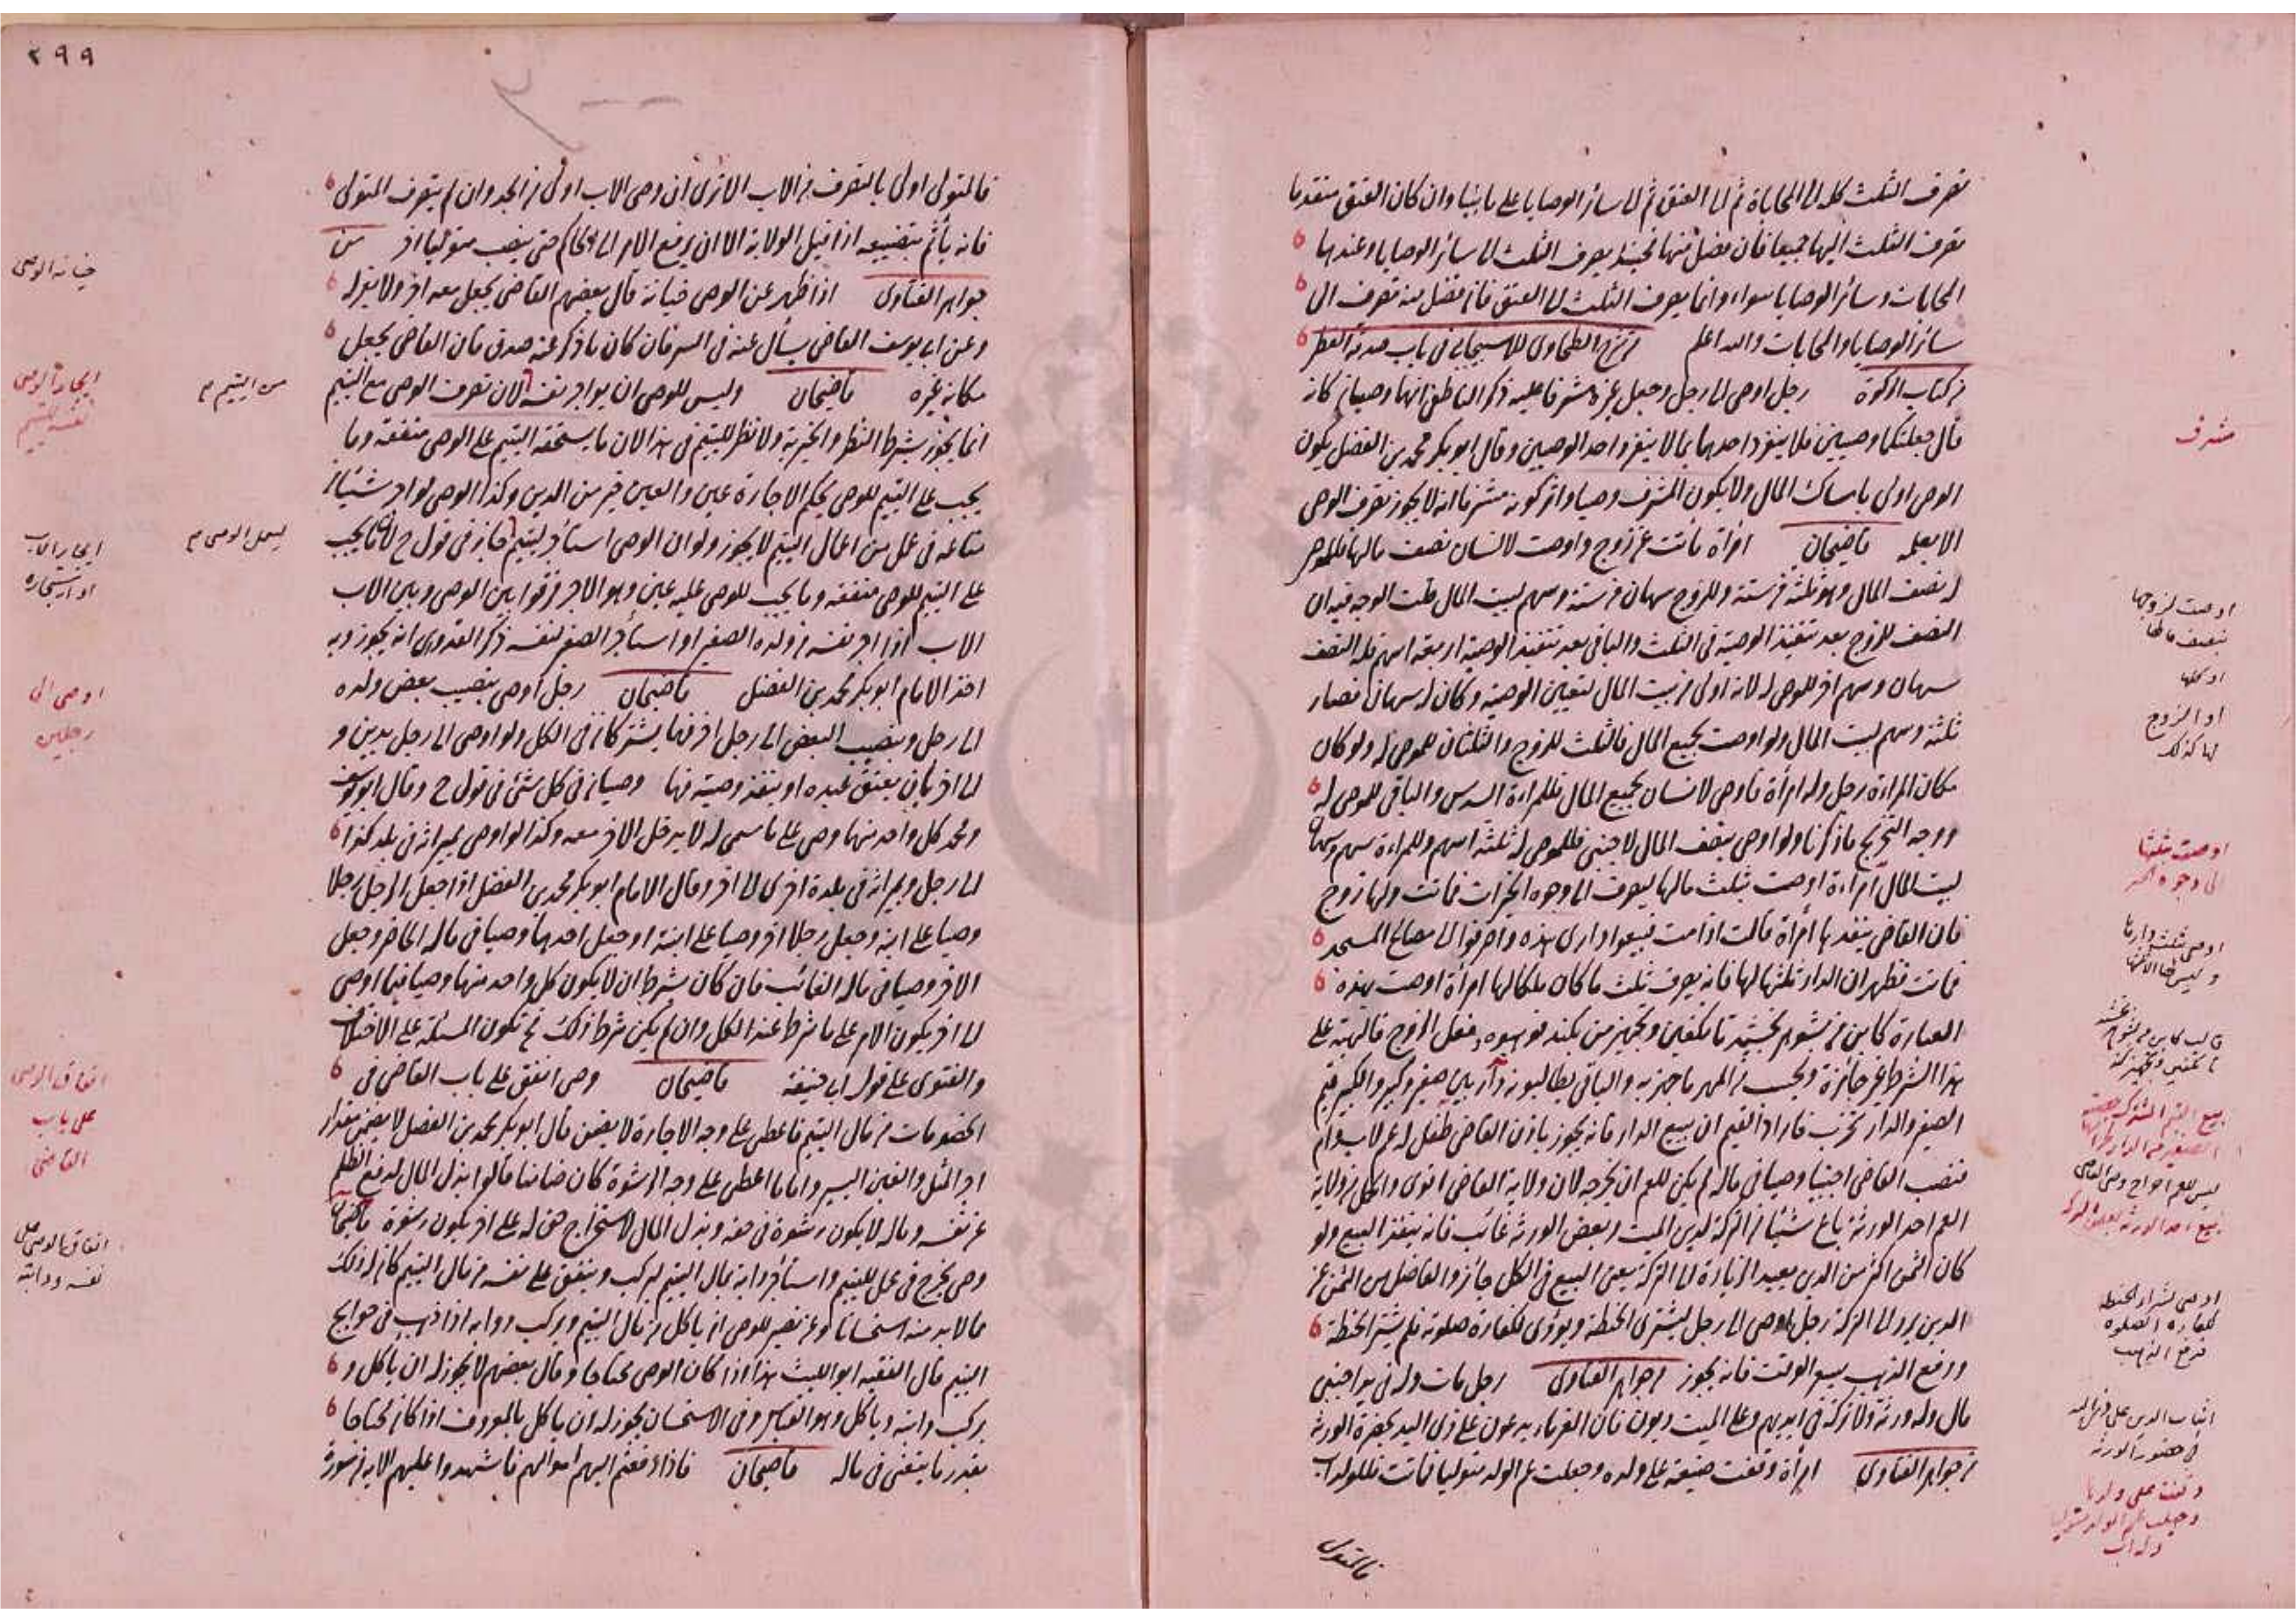 تصرف الثلث كله الى المحاباة ثم الى العتق ثم الى سائر الوصايا على ما بينا وان كان العتق متقدما
تصرف الثلث اليهما جميعا فان فضل منهما فحينئذ يصرف الثلث الى سائر الوصايا وعندهما
المحابات وسائر الوصايا سواء وانما يصرف الثلث الى العتق فان فضل منه تصرف الى
سائر الوصايا والمحابات والله اعلم من شرح الطحاوى للاسبيجابى فى باب صدقة الفطر
من كتاب الزكوة رجل اوصى الى رجل وجعل غيره مشرفا عليه ذكر الناطفى انهما وصيان كانه
قال جعلتكما وصيين فلا ينفرد احدهما بما لا ينفرد احد الوصيين وقال ابو بكر محمد بن الفضل يكون
الوصى اولى بامساك المال ولا يكون المشرف وصيا واثر كونه مشرفا انه لا يجوز تصرف الوصى
الا بعلمه قاضيخان امرأة ماتت عن زوج واوصت لانسان نصف مالها فللموصى
له نصف المال وهو ثلثة من ستة وللزوج سهمان من ستة وسهم لبيت المال قلت الوجه فيه ان
النصف للزوج بعد تنفيذ الوصية فى الثلث والباقى بعد تنفيذ الوصية اربعة اسهم فله النصف
سهمان وسهم اخر للموصى له لانه اولى من بيت المال لتعيين الوصية وكان له سهمان فصار
ثلثة وسهم لبيت المال ولو اوصت بجميع المال فالثلث للزوج والثلثان للموصى له ولو كان
مكان المراءة رجل وله امرأة فاوصى لانسان بجميع المال فللمراءة السدس والباقى للموصى له
ووجه التخريج ما ذكرنا ولو اوصى بنصف المال لاجنبى فللموصى له ثلثة اسهم وللمراءة سهم وسهمان
لبيت المال امراءة اوصت بثلث مالها ليصرف الى وجوه الخيرات فماتت ولها زوج
فان القاضى ينفذها امرأة قالت اذا مت فبيعوا دارى هذه واصرفوا الى مصالح المسجد
فماتت فظهر ان الدار ثلثها لها فانه يصرف ثلث ما كان ملكا لها امرأة اوصت بهذه
العبارة كابين من بشوهر بخشيد تا تكفين وتجهيز من بكند فعل الزوج فالهبة على
هذا الشرط غير جائزة ويجب من المهر ما جهز به والباقى يطالبونه دار بين صغير وكبير والكبير قيم
الصغير والدار تخرب فاراد القيم ان يبيع الدار فانه يجوز باذن القاضى طفل له عم لاب وام
فنصب القاضى اجنبيا وصيا فى ماله لم يكن للعم ان يخرجه لان ولاية القاضى اقوى واكمل من ولاية
العم احد الورثة باع شيئا من التركة لدين الميت وبعض الورثة غائب فانه ينفذ البيع ولو
كان الثمن اكثر من الدين يعيد الزيادة الى التركة يعنى البيع فى الكل جائز والفاضل من الثمن عن
الدين يرد الى التركة رجل اوصى الى رجل ليشترى الحنطة ويؤدى لكفارة صلوته فلم يشتر الحنطة
ودفع الذهب بسعر الوقت فانه يجوز من جواهر الفتاوى رجل مات وله فى يد اجنبى
مال وله ورثة ولا تركة فى ايديهم وعلى الميت ديون فان الغرماء يدعون على ذى اليد بحضرة الورثة
من جواهر الفتاوى امرأة وقفت ضيعة على ولده وجعلت عم الولد متوليا فماتت فللولد اب
فالمتولى
مشرف
اوصت لزوجها
بنصف مالها
او كلها
او الزوج
لها كذلك
اوصت بثلثها
الى وجوه الخير
اوصى بثلث دارها
وليس لها الا ثلثها
بيع القيم المشترك حصة
الصغير من الدار
ليس للعم اخراج وصى القاضى
بيع احد الورثة بعض التركة
اوصى بشراء الحنطة
لكفارة الصلوة
فدفع الذهب
اثبات الدين على ذى اليد
فى حضور الورثة
وقفت على ولدها
وجعلت عم الولد متوليا
وله اب
٢٩٩
فالمتولى اولى بالتصرف من الاب الا ترى ان وصى الاب اولى من الجد وان لم يتصرف المتولى
فانه يأثم بتضييعه اذا قبل الولاية الا ان يرفع الامر الى الحاكم حتى ينصب متوليا اخر من
جواهر الفتاوى اذا ظهر عن الوصى خيانة قال بعضهم القاضى يجعل معه اخر ولا يعزله
وعن ابى يوسف القاضى يسأل عنه فى السر فان كان ما ذكر عنه صدق فان القاضى يجعل
مكانه غيره قاضيخان وليس للوصى ان يواجر نفسه لان تصرف الوصى مع اليتيم
انما يجوز بشرط النظر والخيرية ولا نظر لليتيم فى هذا لان ما يستحقه اليتيم على الوصى منفعة وما
يجب على اليتيم للوصى بحكم الاجارة عين والعين خير من الدين وكذا الوصى لو اجر شيئا من
متاعه فى عمل من اعمال اليتيم لا يجوز ولو ان الوصى استأجر ليتيم جاز فى قول ح لان ما يجب
على اليتيم للوصى منفعة وما يجب للوصى عليه عين وهو الاجر فرقوا بين الوصى وبين الاب
الاب اذا اجر نفسه من ولده الصغير او استأجر الصغير لنفسه ذكر القدورى انه يجوز وبه
اخذ الامام ابو بكر محمد بن الفضل قاضيخان رجل اوصى بنصيب بعض ولده
الى رجل وبنصيب البعض الى رجل اخر فهما يشتركان فى الكل ولو اوصى الى رجل بدين و
الى اخر بان يعتق عبده او ينفذ وصيته فهما وصيان فى كل شئ فى قول ح وقال ابو يوسف
ومحمد كل واحد منهما وصى على ما سمى له لا يدخل الاخر معه وكذا لو اوصى بميراثه فى بلد كذا
الى رجل وبميراثه فى بلدة اخرى الى اخر وقال الامام ابو بكر محمد بن الفضل اذا جعل الرجل رجلا
وصيا على ابنه وجعل رجلا اخر وصيا على ابنته او جعل احدهما وصيا فى ماله الحاضر وجعل
الاخر وصيا فى ماله الغائب فان كان شرط ان لا يكون كل واحد منهما وصيا فيما اوصى
الى اخر يكون الامر على ما شرط عند الكل وان لم يكن شرط ذلك فح تكون المسئلة على الاختلاف
والفتوى على قول ابى حنيفة قاضيخان وصى انفق على باب القاضى فى
الخصومات من مال اليتيم فاعطى على وجه الاجارة لا يضمن قال ابو بكر محمد بن الفضل لا يضمن مقدار
اجر المثل والغبن اليسير واما ما اعطى على وجه الرشوة كان ضامنا قالوا بذل المال لدفع الظلم
عن نفسه وماله لا يكون رشوة فى حقه وبذل المال لاستخراج حق له على اخر يكون رشوة قاضيخان
وصى يخرج فى عمل لليتيم واستأجر دابة بمال اليتيم ليركب وينفق على نفسه من مال اليتيم كان له ذلك
فيما لا بد منه استحسانا وعن نصير للوصى ان يأكل من مال اليتيم ويركب دوابه اذا ذهب فى حوايج
اليتيم قال الفقيه ابو الليث هذا اذا كان الوصى محتاجا وقال بعضهم لا يجوز له ان يأكل و
يركب دابته ويأكل وهو القياس وفى الاستحسان يجوز له ان يأكل بالمعروف اذا كان محتاجا
بقدر ما يتغنى فى ماله قاضيخان فاذا دفعتم اليهم اموالهم فاشهدوا عليهم الاية من سورة
خيانة الوصى
ايجار الوصى
نفسه لليتيم
من اليتيم م
ليعمل الوصى م
ايجار الاب
او استيجاره
اوصى الى
رجلين
انفاق الوصى
على باب
القاضى
انفاق الوصى على
نفسه ودابته